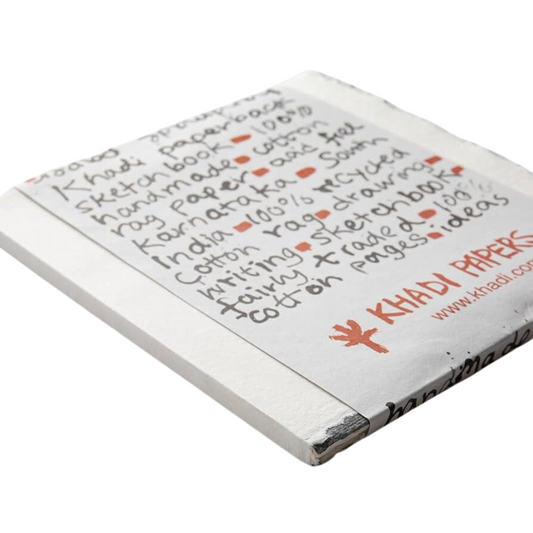 Khadi paperback
sketchbook ▪ 100%
handmade ▪ cotton
rag paper ▪ acid free
Karnataka ▪ South
India ▪ 100% recycled
Cotton rag ▪ drawing ▪
writing ▪ sketchbook ▪
fairly traded ▪ 100%
cotton pages ▪ ideas
KHADI PAPERS
www.khadi.co
handmade